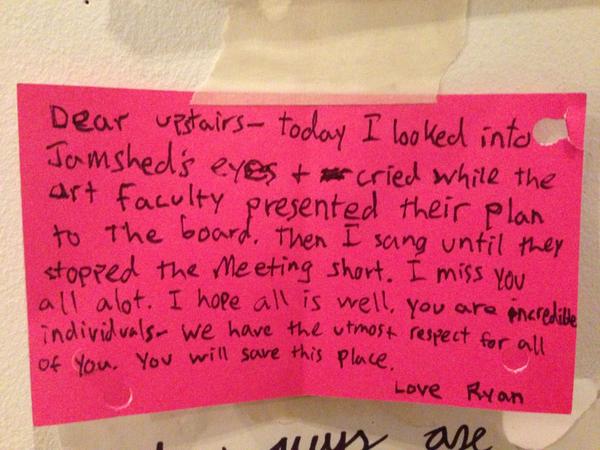 Dear upstairs- today I looked into
Jamshed's eyes + cried while the
art faculty presented their plan
to The board. Then I sang until they
stopped the Meeting short. I miss you
all alot. I hope all is well. you are incredible
individuals- we have the utmost respect for all
of you. You will save this place.
Love Ryan
guys are